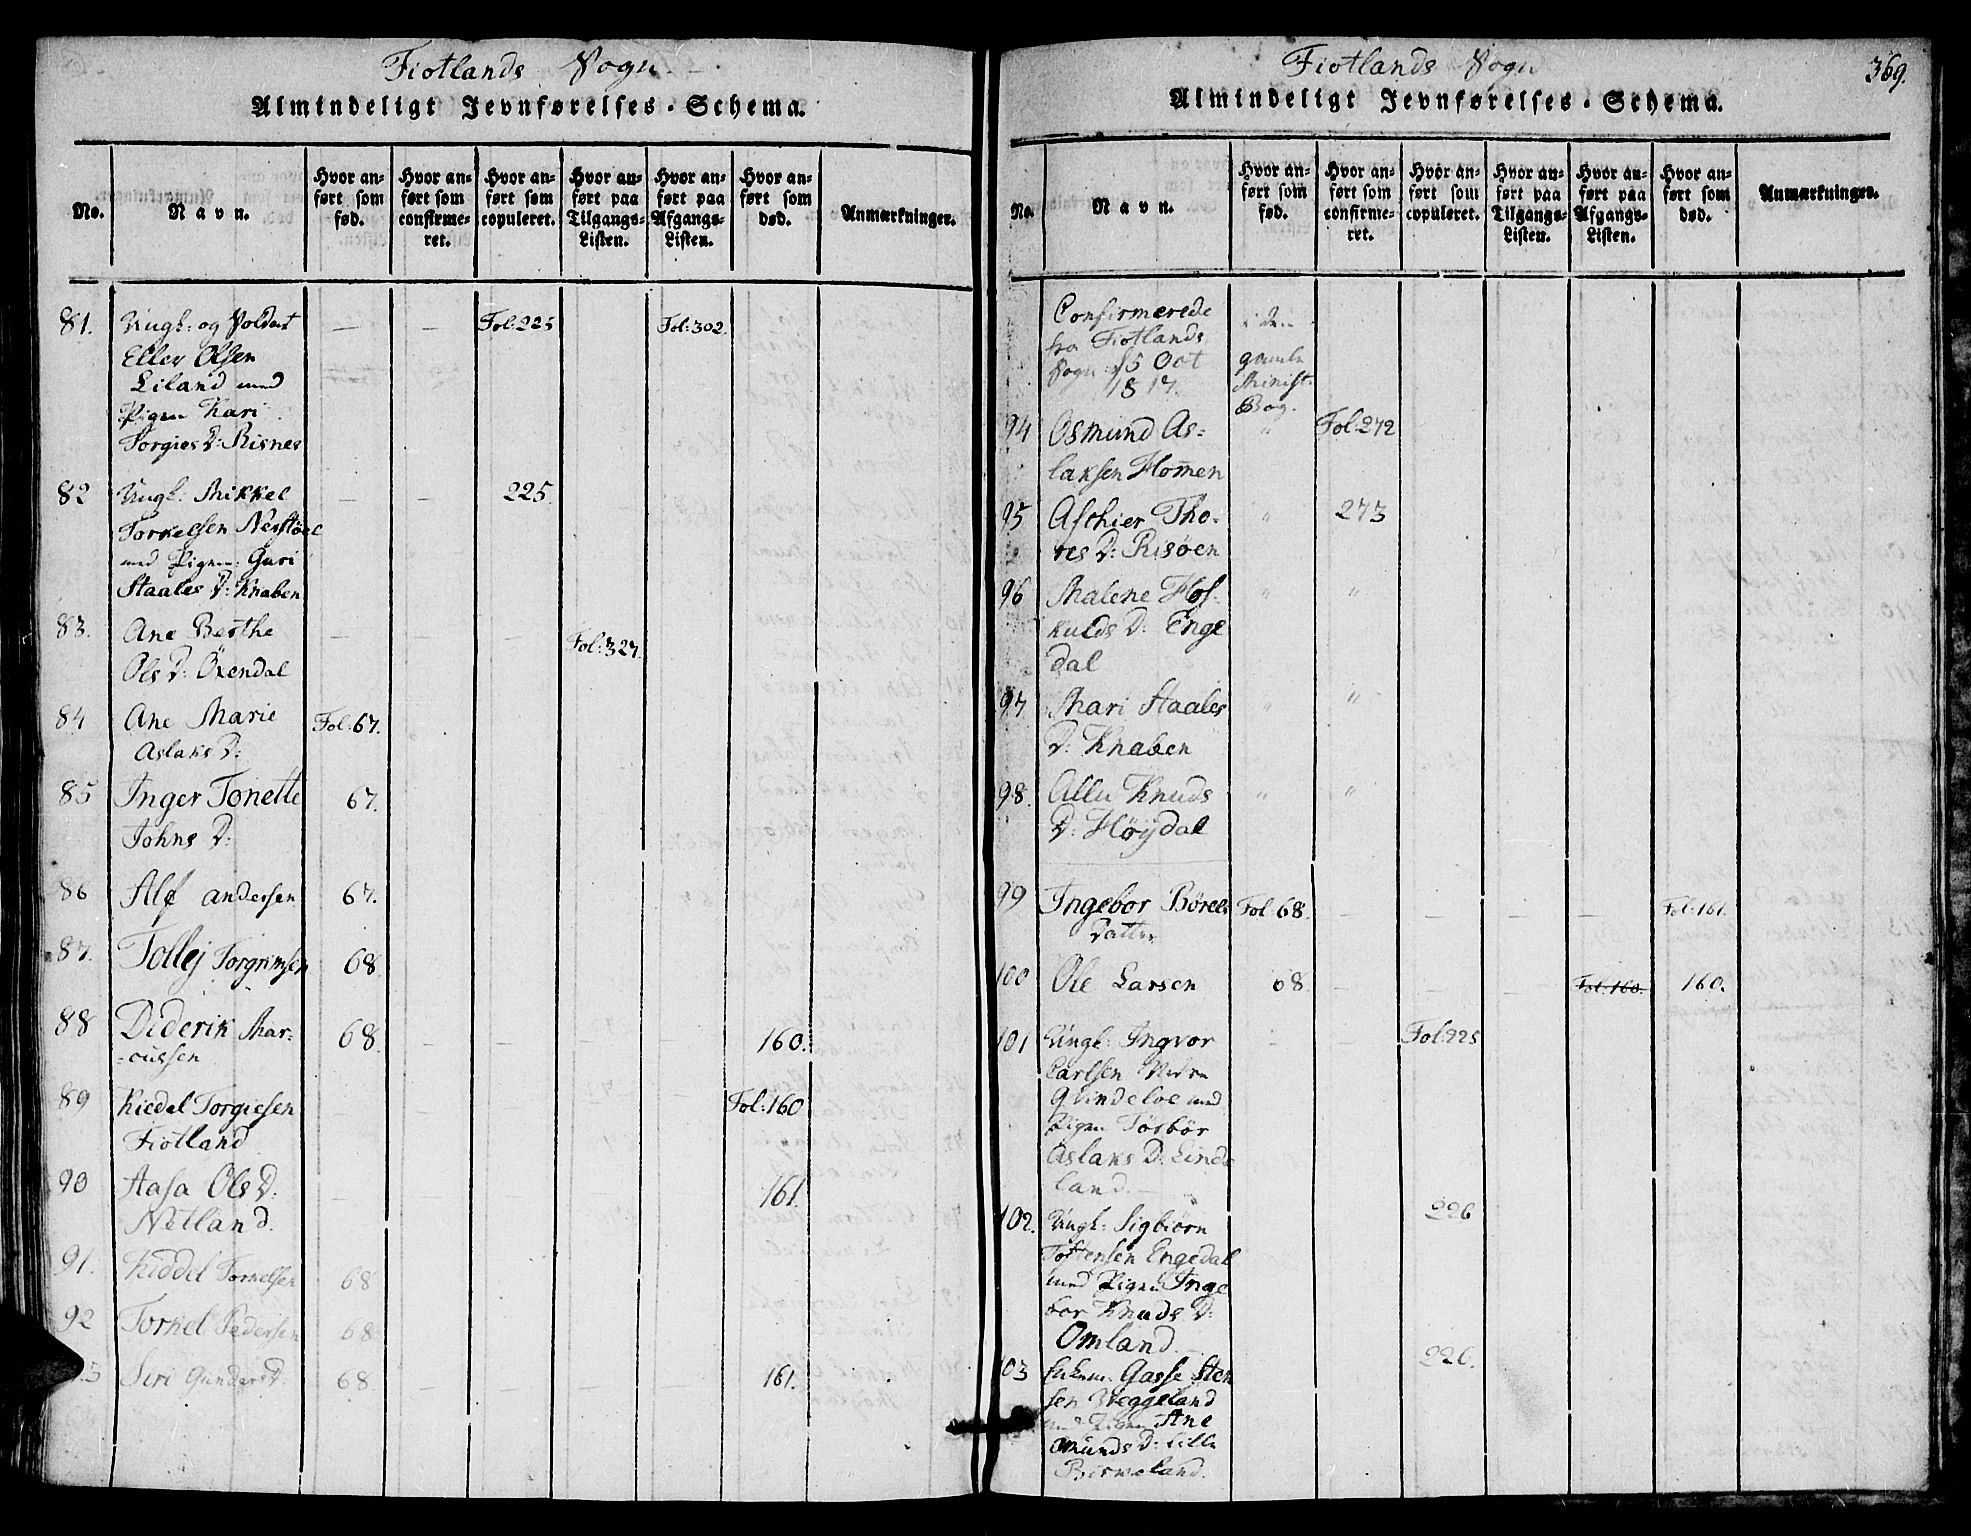 Fiotlands Sogn.
Almindeligt Jevnførelses-Schema.
No.
Navn.
Hvor an-
ført som
fød.
Hvor an-
ført som
confirme-
ret.
Hvor an-
ført som
copuleret.
Hvor an-
ført paa
Tilgangs-
Listen.
Hvor an-
ført paa
Afgangs-
Listen.
Hvor an-
ført som
død.
Anmærkninger.
81. Ungk: og Soldat — — Fol:225 Fol:302.
Eller Olsen
Liland med
Pigen Kari
Torgies D: Risnes
82 Ungk: Mikkel — — 225.
Torkelsen Nestöel
med Pigen: Guri
Staales D: Knaben
83. Ane Berthe — — — Fol:327.
Ols D: Öxendal
84 Ane Marie Fol:67.
Aslaks D:
85 Inger Tonette 67.
Johns D:
86 Alf andersen 67.
87. Tollej Torgrimsen 68
88 Diderik Mar- 68. — — — — 160.
-cussen
89 Kiedel Torgiesen Fol:160
Fiotland
90 Aasa Ols D. — 161.
Netland.
91. Kiddel Torkelsen 68
92 Torkel Pedersen 68
Siri Gunders D. 68 — — 161.
Fiotlands Sogn
369.
Almindeligt Jevnførelses-Schema.
No.
Navn.
Hvor an-
ført som
fød.
Hvor an-
ført som
confirme-
ret.
Hvor an-
ført som
copuleret.
Hvor an-
ført paa
Tilgangs-
Listen.
Hvor an-
ført paa
Afgangs-
Listen.
Hvor an-
ført som
død.
Anmærkninger.
Confirmerede i den
fra Fiotlands gamle
Sogn: 15 Oct Minist.
1817. Bog.
94 Osmund As= " Fol:272
laksen Homen
95 Aschier Tho- " 273
res D: Risöen
96 Malene Hos- " "
kulds D: Enge
dal
97 Mari Staales " "
D: Knaben
98. Allu Knuds " "
D: Höijdal
99 Ingebor Börels Fol 68. — — — — Fol:161.
Datter
100 Ole Larsen 68. — — — Fol:160. 160.
101 Ungk: Ingvor — — Fol:225
Carlsen
Qvindeloe med
Pigen Törbör
Aslaks D: Linde
land. —
102. Ungk: Sigbiörn 226
Tostensen Engedal
med Pigen Inge
bor Knuds D:
Omland.
103 Enkem. Gasse Sten 226.
sen Veggeland
med Pigen Ane
Omunds D: Lille
Birkeland.